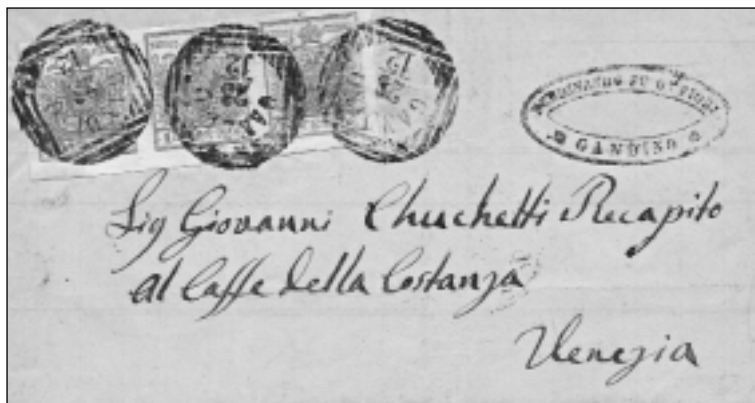 GANDINO
Sig Giovanni Chuchetti Recapito
al Caffe della Costanza
Venezia